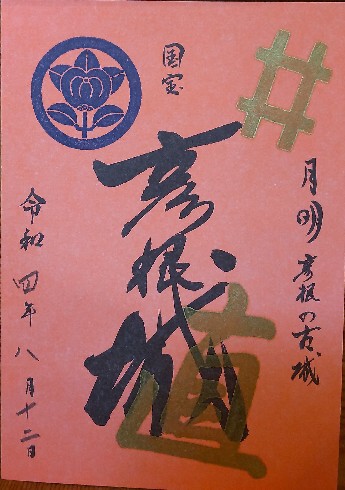 月明 彦根の古城
国宝
彦根城
直
令和四年八月十二日